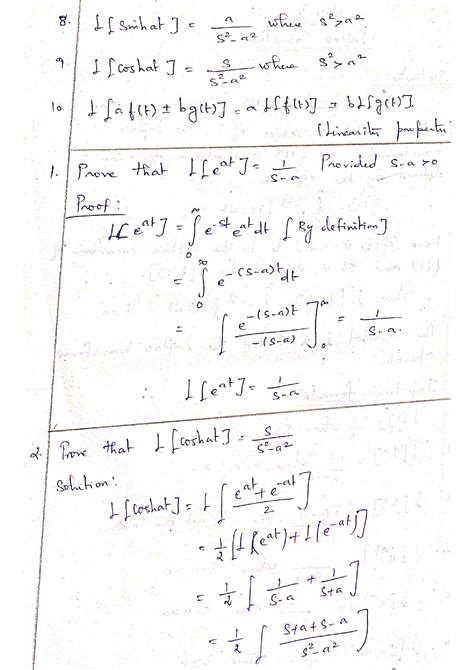 8. L[Sinhat] = a/(s²-a²) where s²>a²
9. L[coshat] = s/(s²-a²) where s²>a²
10. L[af(t) ± bg(t)] = a L[f(t)] ± b L[g(t)]
(Linearity property)
1. Prove that L[e^at] = 1/(s-a) Provided s-a>0
Proof:
L[e^at] = ∫₀^∞ e^-st e^at dt [By definition]
= ∫₀^∞ e^-(s-a)t dt
= [e^-(s-a)t/-(s-a)]₀^∞ = 1/(s-a).
∴ L[e^at] = 1/(s-a)
2. Prove that L[coshat] = s/(s²-a²)
Solution:
L[coshat] = L[(e^at + e^-at)/2]
= 1/2 [L[e^at) + L(e^-at)]
= 1/2 [1/(s-a) + 1/(s+a)]
= 1/2 [(s+a+s-a)/(s²-a²)]